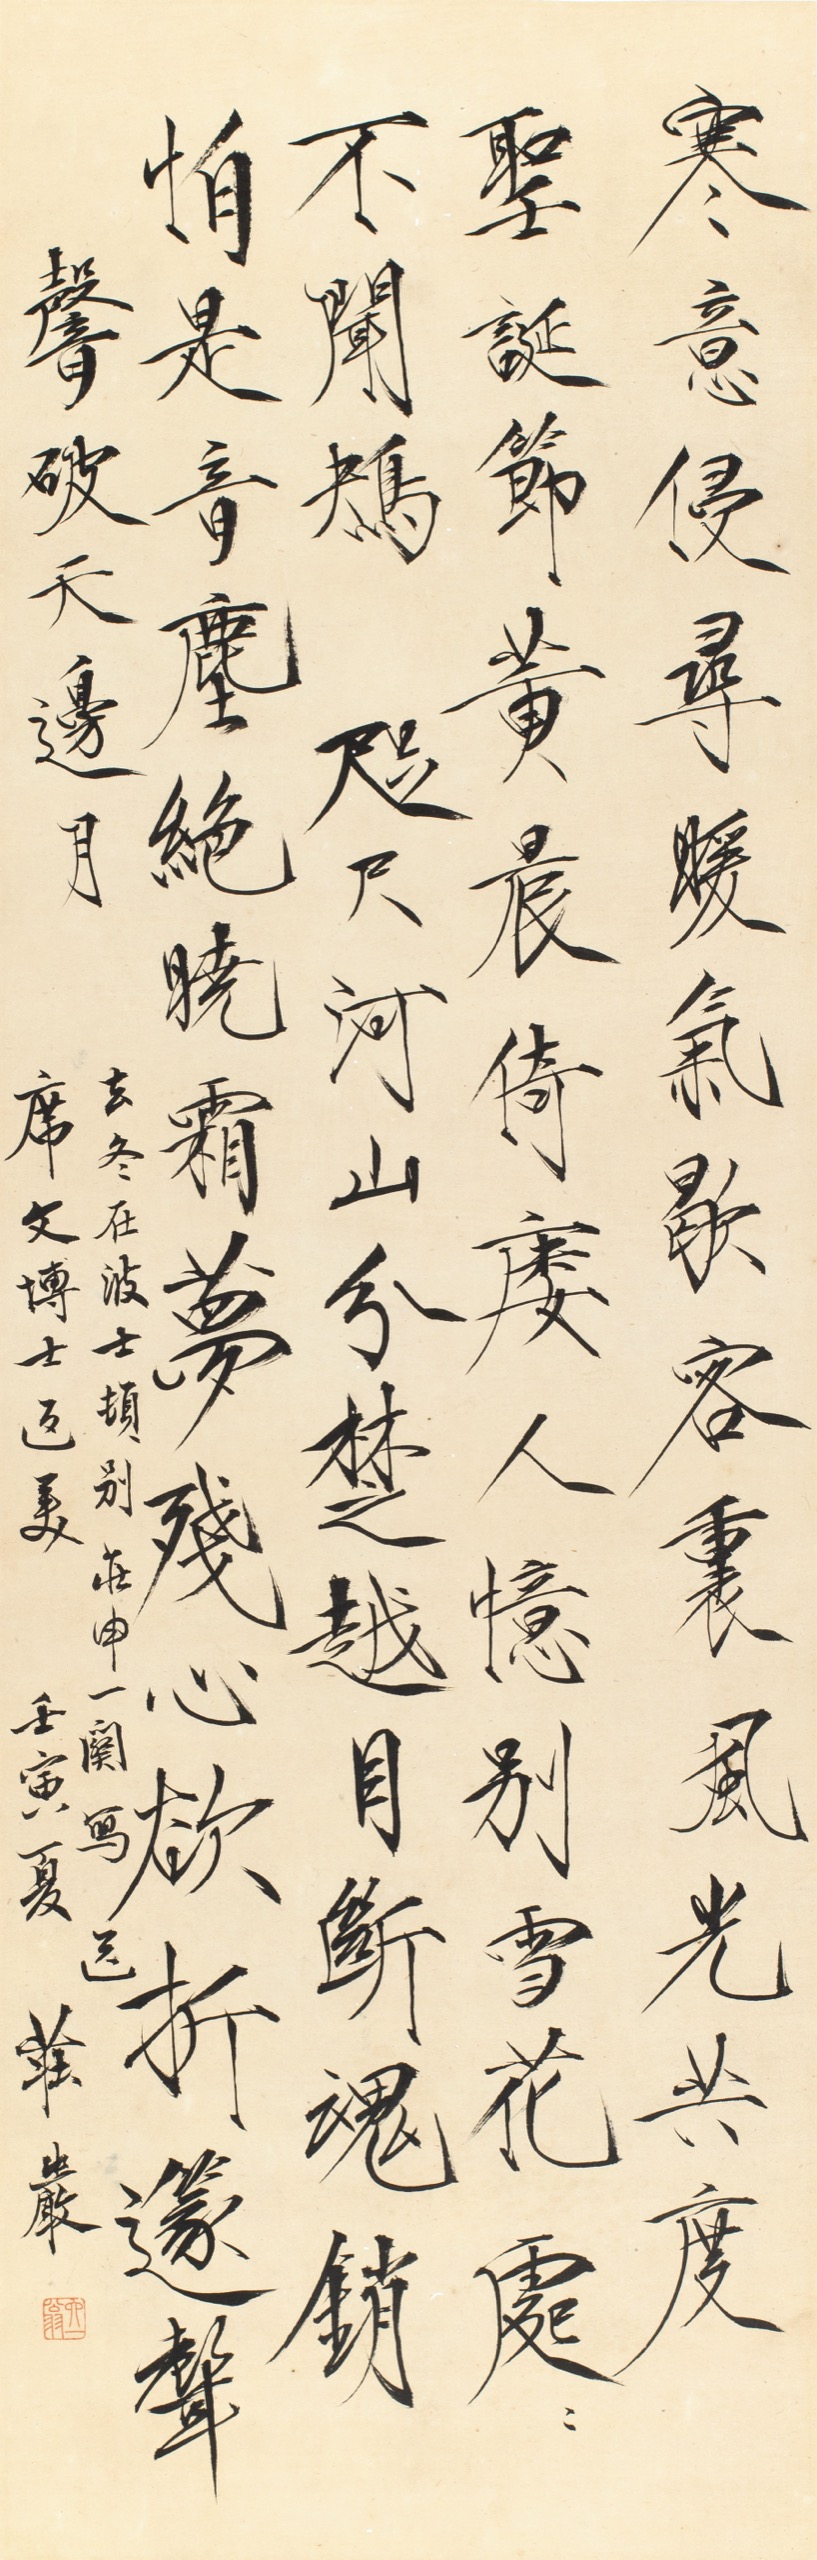 寒意侵尋暖氣歇客裏風光共度
聖誕節黃昏倚廔人憶別雪花處〻
不聞鴣 咫尺河山分楚越目斷魂銷
怕是音塵絕曉霜夢殘心欲折邃聲
聲破天邊月
去冬在波士頓別莊申一闋寫送
席文博士返美 壬寅夏 莊嚴